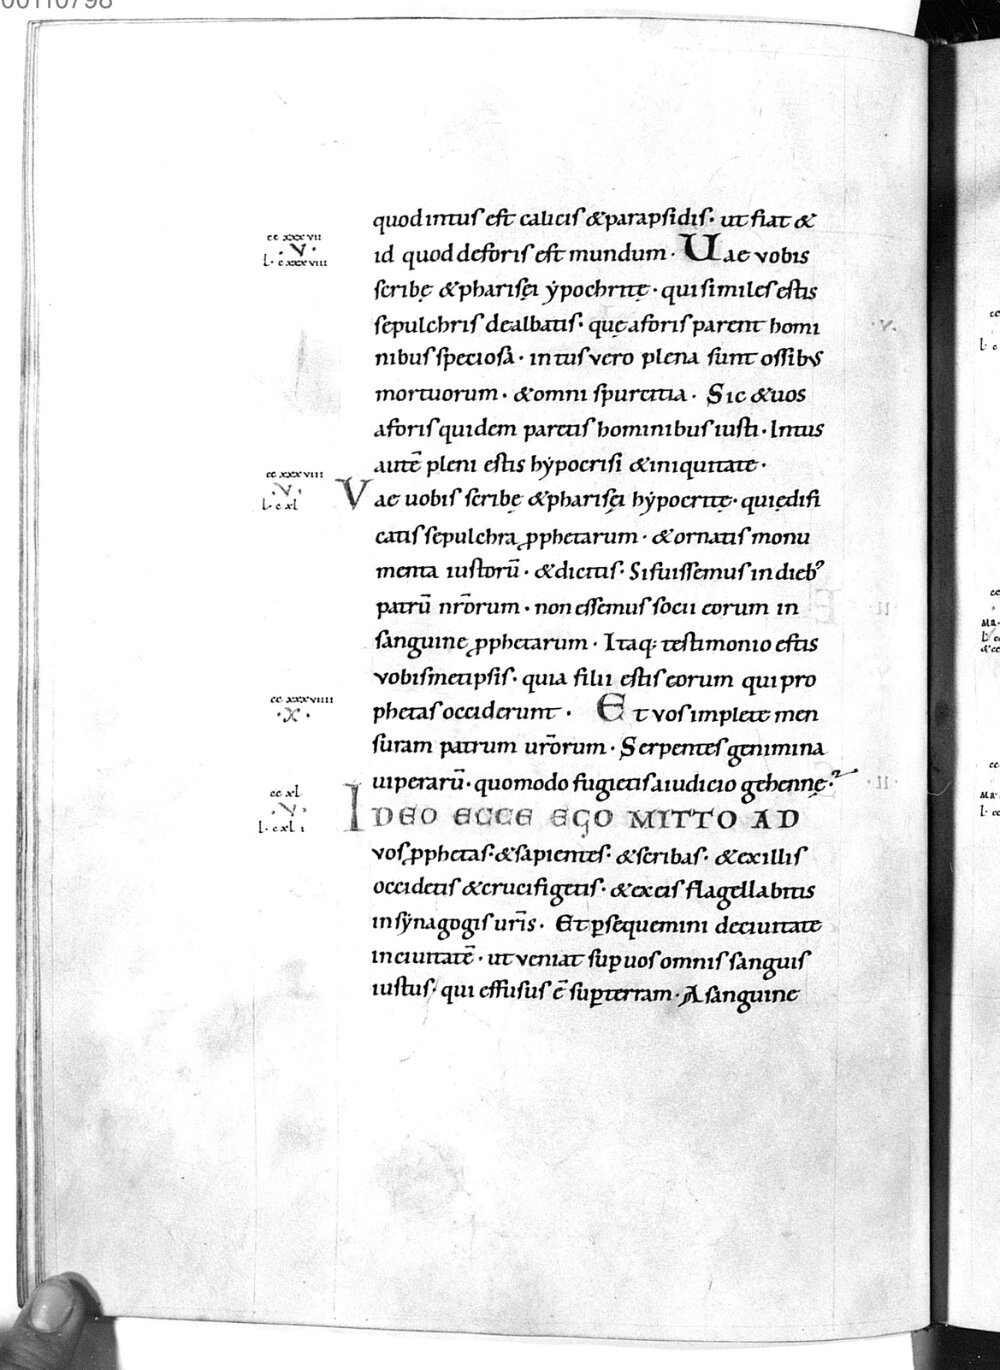 00110798
quod intus est calicis & parapsidis· ut fiat &
cc xxxvii
·V·
L· cxxxviii
id quod deforis est mundum· Uae vobis
scribę & pharisęi ẏpochritę· qui similes estis
sepulchris dealbatis· quę aforis parent homi
nibus speciosa· intus vero plena sunt ossibus
mortuorum· & omni spurcitia· Sic & uos
aforis quidem paretis hominibus iusti· Intus
autē pleni estis hẏpocrisi & iniquitate·
cc xxxviii
·V·
L· cxl
Vae uobis scribę & pharisęi hẏpocritę· qui ędifi
catis sepulchra ꝓphetarum· & ornatis monu
menta iustorū· & dicitis· Si fuissemus in dieb᾿
patrū nr̄orum· non essemus socii eorum in
sanguine ꝓphetarum· Itaq; testimonio estis
vobismetipsis· quia filii estis eorum qui pro
cc xxxviiii
·X·
phetas occiderunt· Et vos implete men
suram patrum ur̄orum· Serpentes genimina
uiperarū· quomodo fugietis a iudicio gehennę·?
cc xl
·V·
L· cxli
IDEO ECCE EGO MITTO AD
vos ꝓphetas· & sapientes· & scribas· & ex illis
occidetis & crucifigetis· & ex eis flagellabitis
in sẏnagogis ur̄is· Et ꝑsequemini de ciuitate
in ciuitatē· ut veniat suꝑ uos omnis sanguis
iustus· qui effusus ē suꝑ terram· A sanguine